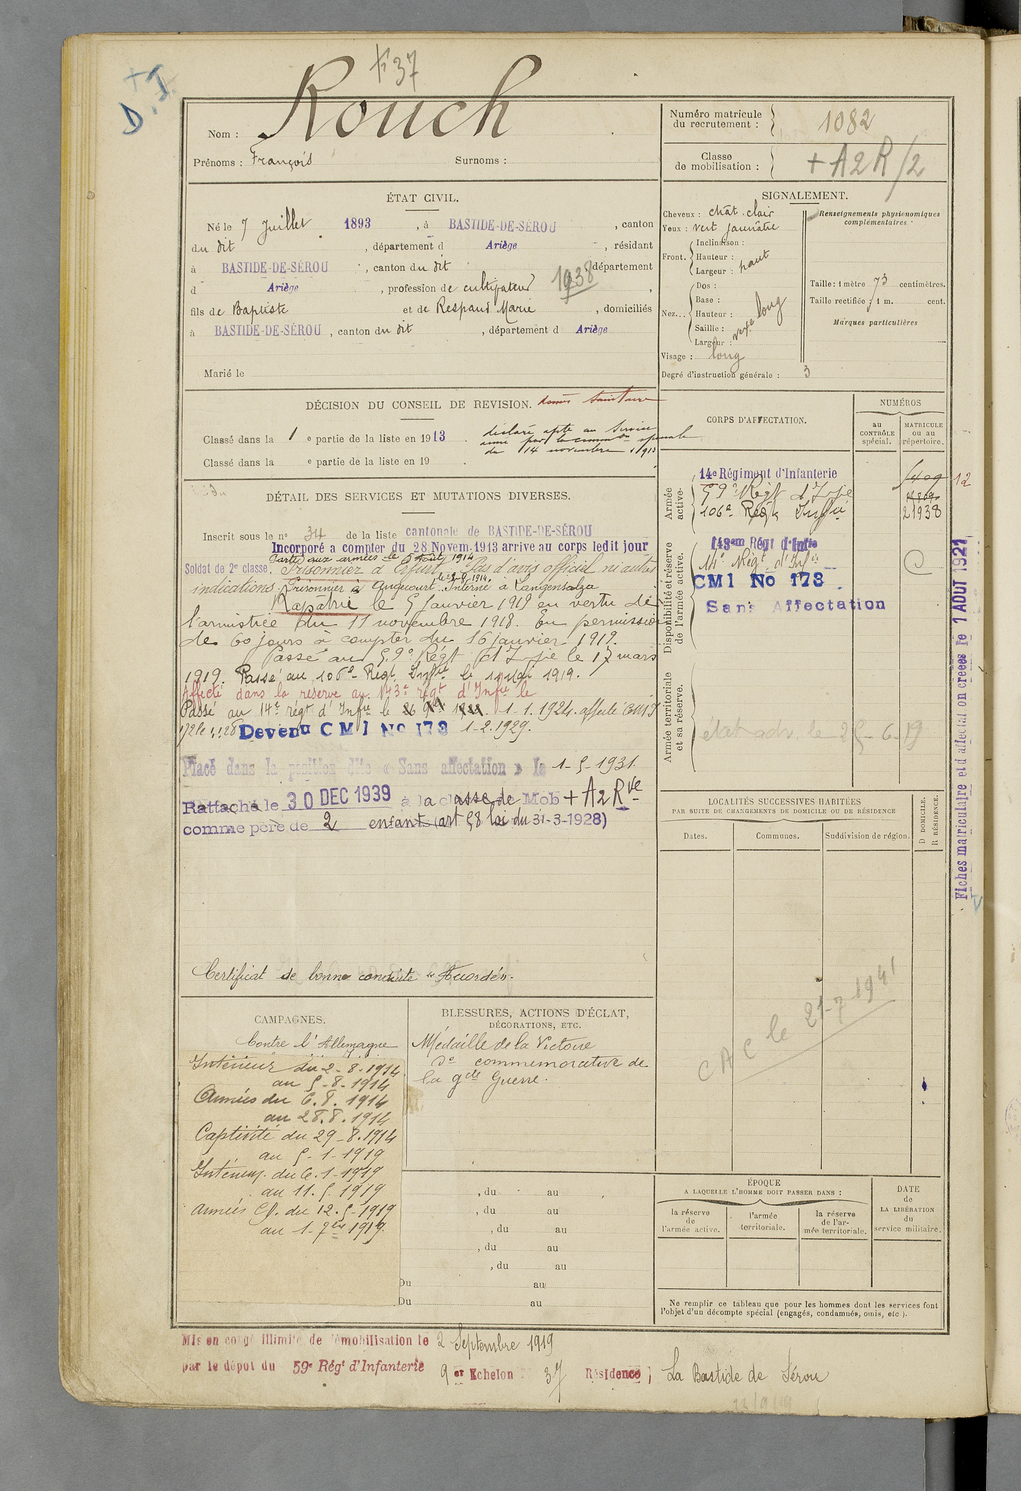 37
D.I
Nom : Rouch
Prénoms : François Surnoms :
Numéro matricule du recrutement : 1082
Classe de mobilisation : + A2R/2
ÉTAT CIVIL.
Né le 7 Juillet 1893, à BASTIDE-DE-SÉROU, canton
du dit, département d Ariège, résidant
à BASTIDE-DE-SÉROU, canton du dit, département
d Ariège, profession de cultivateur 1938
fils de Baptiste et de Respaud Marie, domiciliés
à BASTIDE-DE-SÉROU, canton du dit, département d Ariège
Marié le
SIGNALEMENT.
Cheveux : chât. clair
Yeux : vert jaunâtre
Front. Inclinaison :
Hauteur :
Largeur : haut
Nez... Dos :
Base :
Hauteur :
Saillie :
Largeur : vexe long
Visage : long
Degré d'instruction générale : 3
Renseignements physionomiques complémentaires :
Taille : 1 mètre 73 centimètres.
Taille rectifiée : 1 m. cent.
Marques particulières
DÉCISION DU CONSEIL DE REVISION.
Classé dans la 1e partie de la liste en 1913
déclaré apte au service
armé par la commion spéciale
du 14 novembre 1913
Classé dans la e partie de la liste en 19
DÉTAIL DES SERVICES ET MUTATIONS DIVERSES.
Inscrit sous le n° 34 de la liste cantonale de BASTIDE-DE-SÉROU
Incorporé a compter du 28 Novem. 1913 arrive au corps ledit jour
Soldat de 2e classe.
Parti aux armées le 6 août 1914
Prisonnier à Erfurt. Pas d'avis officiel ni autres
indications. Prisonnier à Interné à Langensalza
Rapatrié le 5 Janvier 1919 en vertu de
l'armistice du 11 novembre 1918. En permission
de 60 jours à compter du 16 janvier 1919.
Passé au 59e Régt d'Infie le 17 mars
1919. Passé au 106e Régt Inftie le 1919.
Affecté dans la réserve au 143e régt d'Infie le
Passé au 14e régt d'Infie le 1.1.1924. affecté
Devenu CMI No 178 1-2-1929.
Placé dans la position dite « Sans affectation » le 1-5-1931.
Rattaché le 30 DEC 1939 à la classe de Mob + A2Rve
comme père de 2 enfant (art 58 loi du 31-3-1928)
Certificat de bonne conduite "Accordé".
CORPS D'AFFECTATION.
NUMÉROS
au CONTRÔLE spécial.
MATRICULE ou au répertoire.
Armée active.
14e Régiment d'Infanterie
59e Régt d'Infie
106e Régt Infie 21938
12
Disponibilité et réserve de l'armée active.
143em Régt d'Infie
14e Régt d'Infie
CMI No 178
Sans Affectation
Armée territoriale et sa réserve.
état adr. le 25-6-19
Fiches matriculaire et d'affectation créées le 1 AOUT 1921
LOCALITÉS SUCCESSIVES HABITÉES
PAR SUITE DE CHANGEMENTS DE DOMICILE OU DE RÉSIDENCE
Dates. Communes. Subdivision de région. D DOMICILE. R RÉSIDENCE.
CAC le 21-7-1941
CAMPAGNES.
Contre l'Allemagne
Intérieur du 2-8-1914
au 5-8-1914
Armées du 6.8.1914
au 28.8.1914
Captivité du 29-8-1914
au 5-1-1919
Intérieur du 6.1-1919
au 11.5-1919
Armées du 12.5-1919
au 1-7bre 1919
BLESSURES, ACTIONS D'ÉCLAT,
DÉCORATIONS, ETC.
Médaille de la Victoire
do commemorative de
la gde Guerre.
, du au
, du au
, du au
, du au
, du au
Du au
Du au
ÉPOQUE
A LAQUELLE L'HOMME DOIT PASSER DANS :
la réserve de l'armée active.
l'armée territoriale.
la réserve de l'armée territoriale.
DATE de LA LIBÉRATION du service militaire.
Ne remplir ce tableau que pour les hommes dont les services font
l'objet d'un décompte spécial (engagés, condamnés, omis, etc.).
Mis en congé illimité de démobilisation le 2 Septembre 1919
par le dépôt du 59e Régt d'Infanterie 9er Echelon 37 Résidence ; La Bastide de Sérou